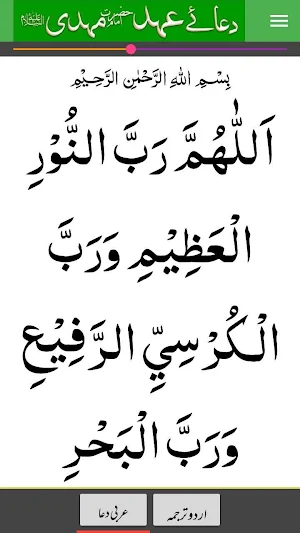 دعائے عہد حضرت امام مہدی
بِسْمِ اللهِ الرَّحْمٰنِ الرَّحِيْمِ
اَللّٰهُمَّ رَبَّ النُّوْرِ
الْعَظِيْمِ وَرَبَّ
الْكُرْسِيِّ الرَّفِيْعِ
وَرَبَّ الْبَحْرِ
اردو ترجمہ
عربی دعا